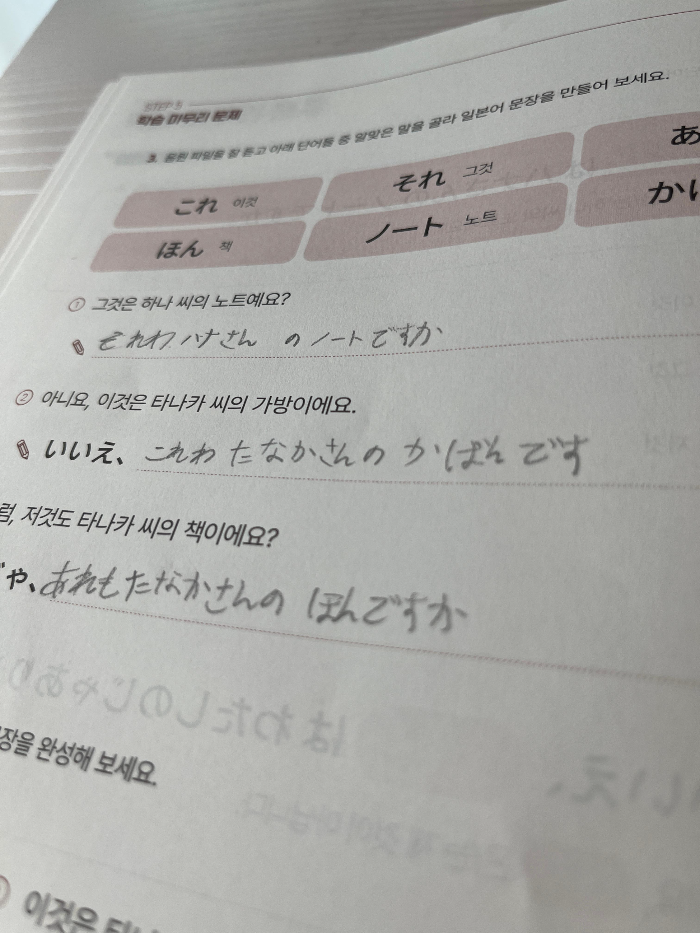 STEP 5
학습 마무리 문제
3. 음원 파일을 잘 듣고 아래 단어들 중 알맞은 말을 골라 일본어 문장을 만들어 보세요.
これ 이것 それ 그것 あ
ほん 책 ノート 노트 かい
① 그것은 하나 씨의 노트예요?
それわ ハナさん の ノートですか
② 아니요, 이것은 타나카 씨의 가방이에요.
いいえ、これわ たなかさんの かばん です
럼, 저것도 타나카 씨의 책이에요?
や、あれもたなかさんの ほんですか
장을 완성해 보세요.
이것은